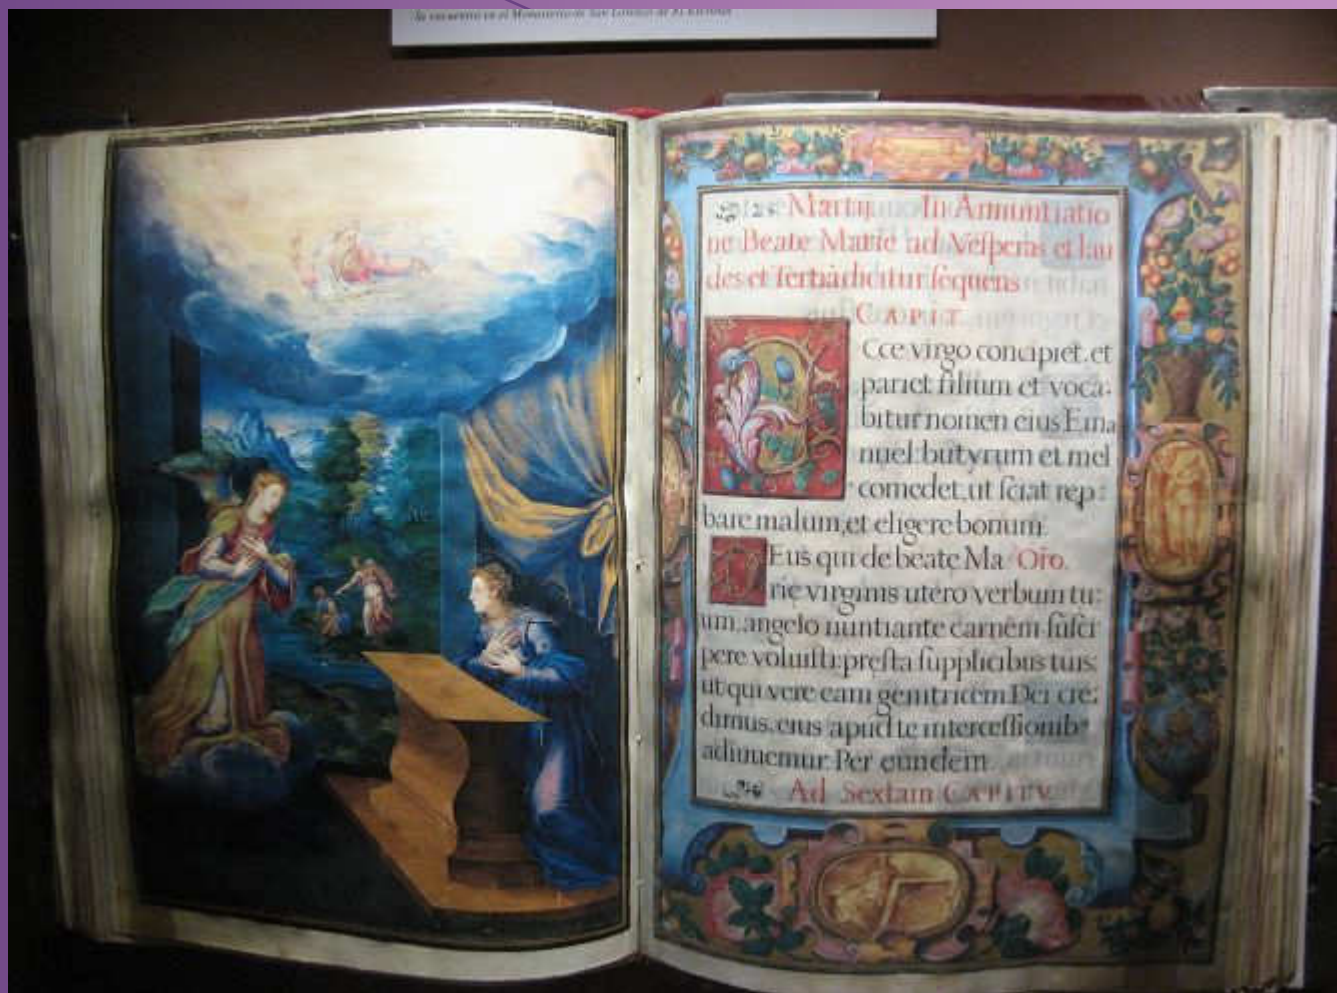 Se encuentra en el Monasterio de San Lorenzo de El Escorial
25 Martij In Annuntiatio
ne Beate Marie ad Vesperas et lau
des et Tertiā dicitur sequens
CAPIT.
ECce virgo concipiet. et
pariet filium et voca-
bitur nomen eius Ema
nuel: butyrum et mel
comedet, ut sciat rep:
bare malum, et eligere bonum.
DEus qui de beate Ma Oro.
rie virginis utero verbum tu:
um, angelo nuntiante carnem susci
pere voluisti: presta supplicibus tuis:
ut qui vere eam genitricem Dei cre:
dimus, eius apud te intercessionibꝰ
adiuuemur. Per eundem
Ad Sextam CAPITV.